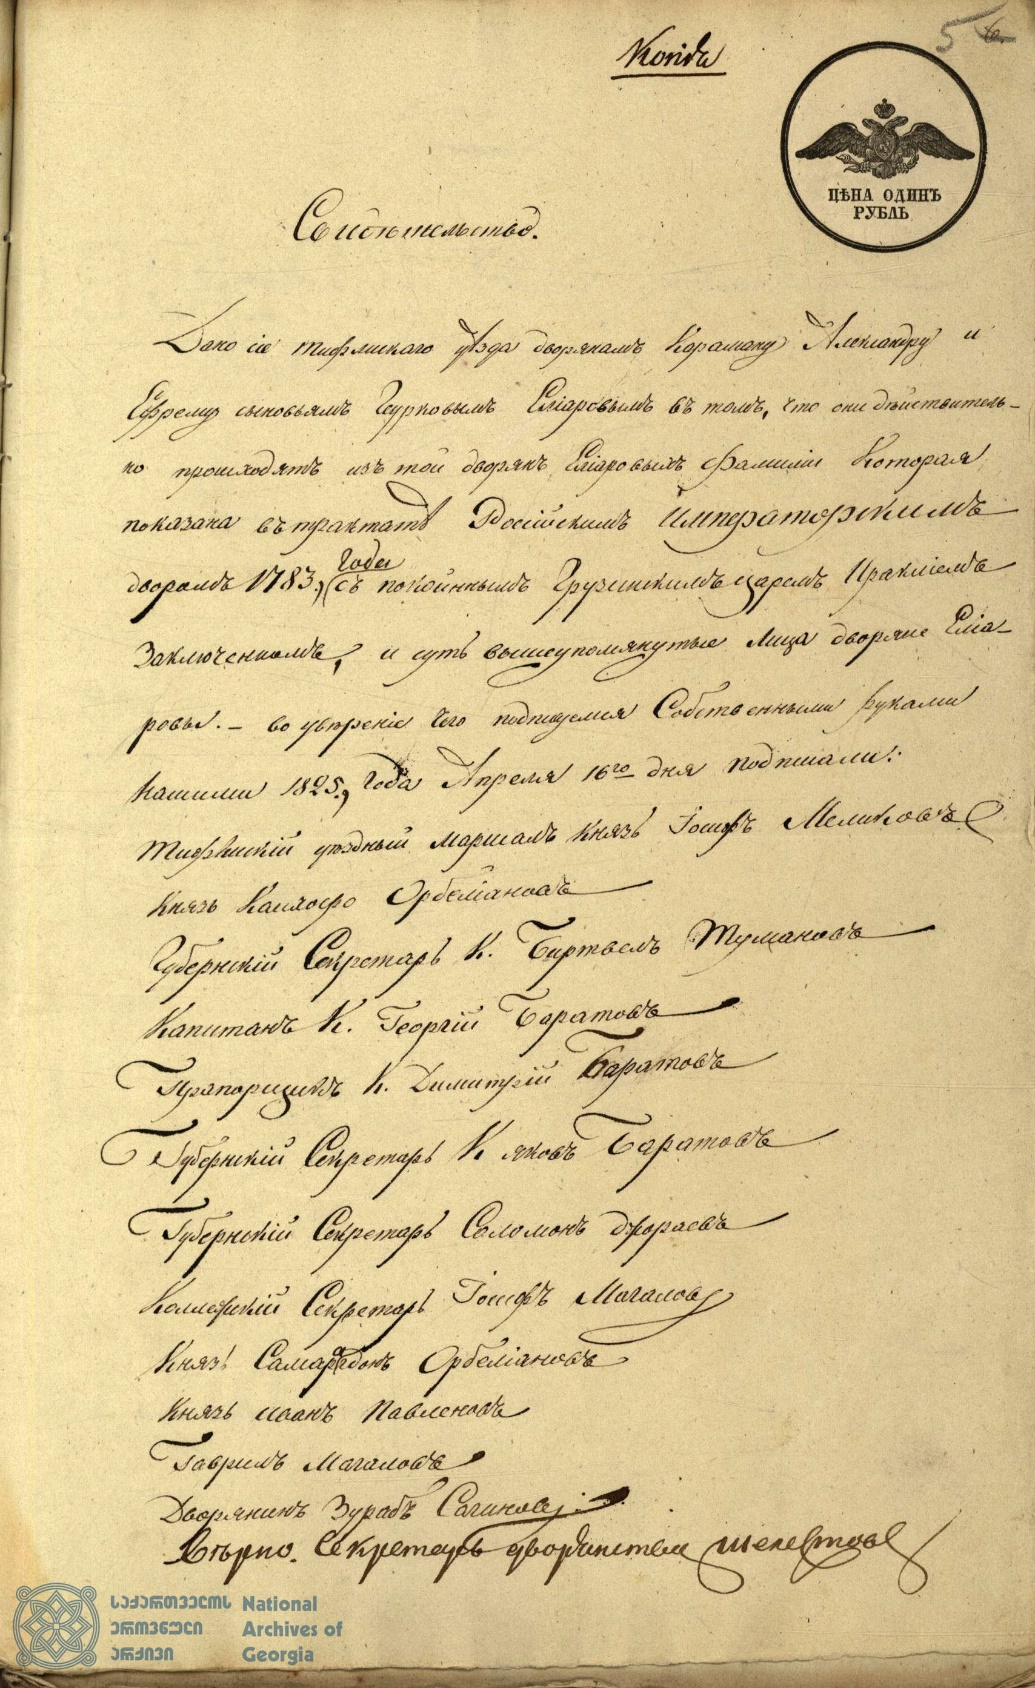 5 6.
Копія
ЦѢНА ОДИНЪ
РУБЛЬ
Свидѣтельство.
Дано сіе тифлискаго уѣзда дворянамъ Караману Александру и
Ефрему сыновьямъ Гурковымъ Еліаровымъ въ томъ, что они дѣйствитель-
но происходятъ изъ той дворянъ Еліаровымъ фамиліи которая
показана въ трактатѣ Россійскимъ Императорскимъ
дворомъ 1783, года съ покойнымъ Грузинскимъ царемъ Иракліемъ
заключенномъ, и суть вышеупомянутые лица дворяне Еліа-
ровы. - во увѣреніе чего подписуемся Собственными руками
нашими 1825, года Апреля 16го дня подписали:
тифлискій уѣздный маршалъ князь Іосифъ Меликовъ
князь Каихосро Орбеліановъ
Губернскій Секретарь К. Биртвелъ Тумановъ
Капитанъ К. Георгій Баратовъ
Прапорщикъ К. Димитрій Баратовъ
Губернскій Секретарь К яковъ Баратовъ
Губернскій Секретарь Соломонъ
Коллежскій Секретарь Іосифъ Магаловъ
Князь Орбеліановъ
Князь иванъ Павленовъ
Гаврилъ Магаловъ
Дворянинъ Зурабъ Сагиновъ
Вѣрно. Секретарь дворянства Шелестовъ
საქართველოს National
ეროვნული Archives of
არქივი Georgia